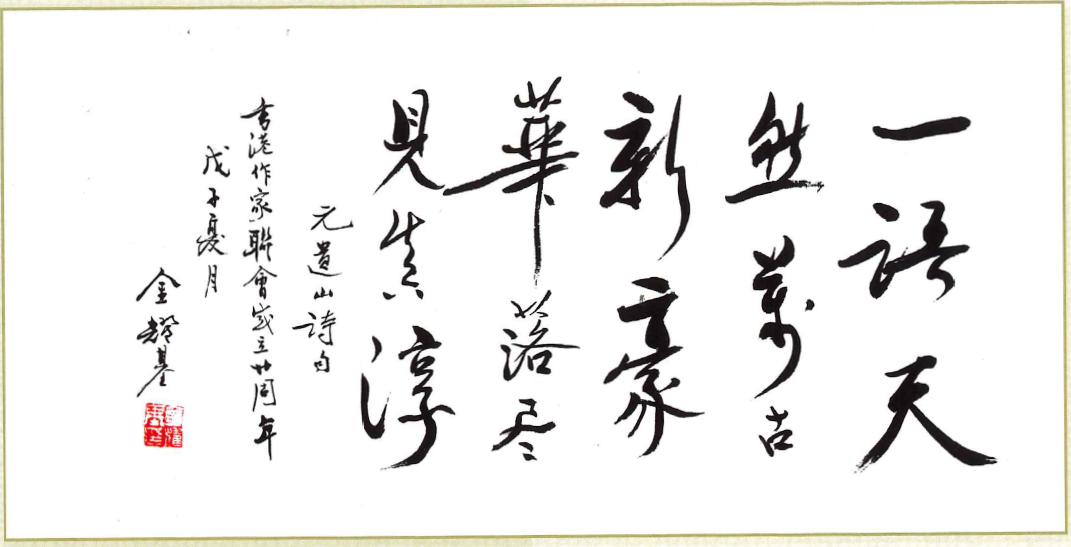 一語天
然萬古
新豪
華落尽
見真淳
元遺山詩句
香港作家聯會成立廿周年
戊子夏月
金耀基